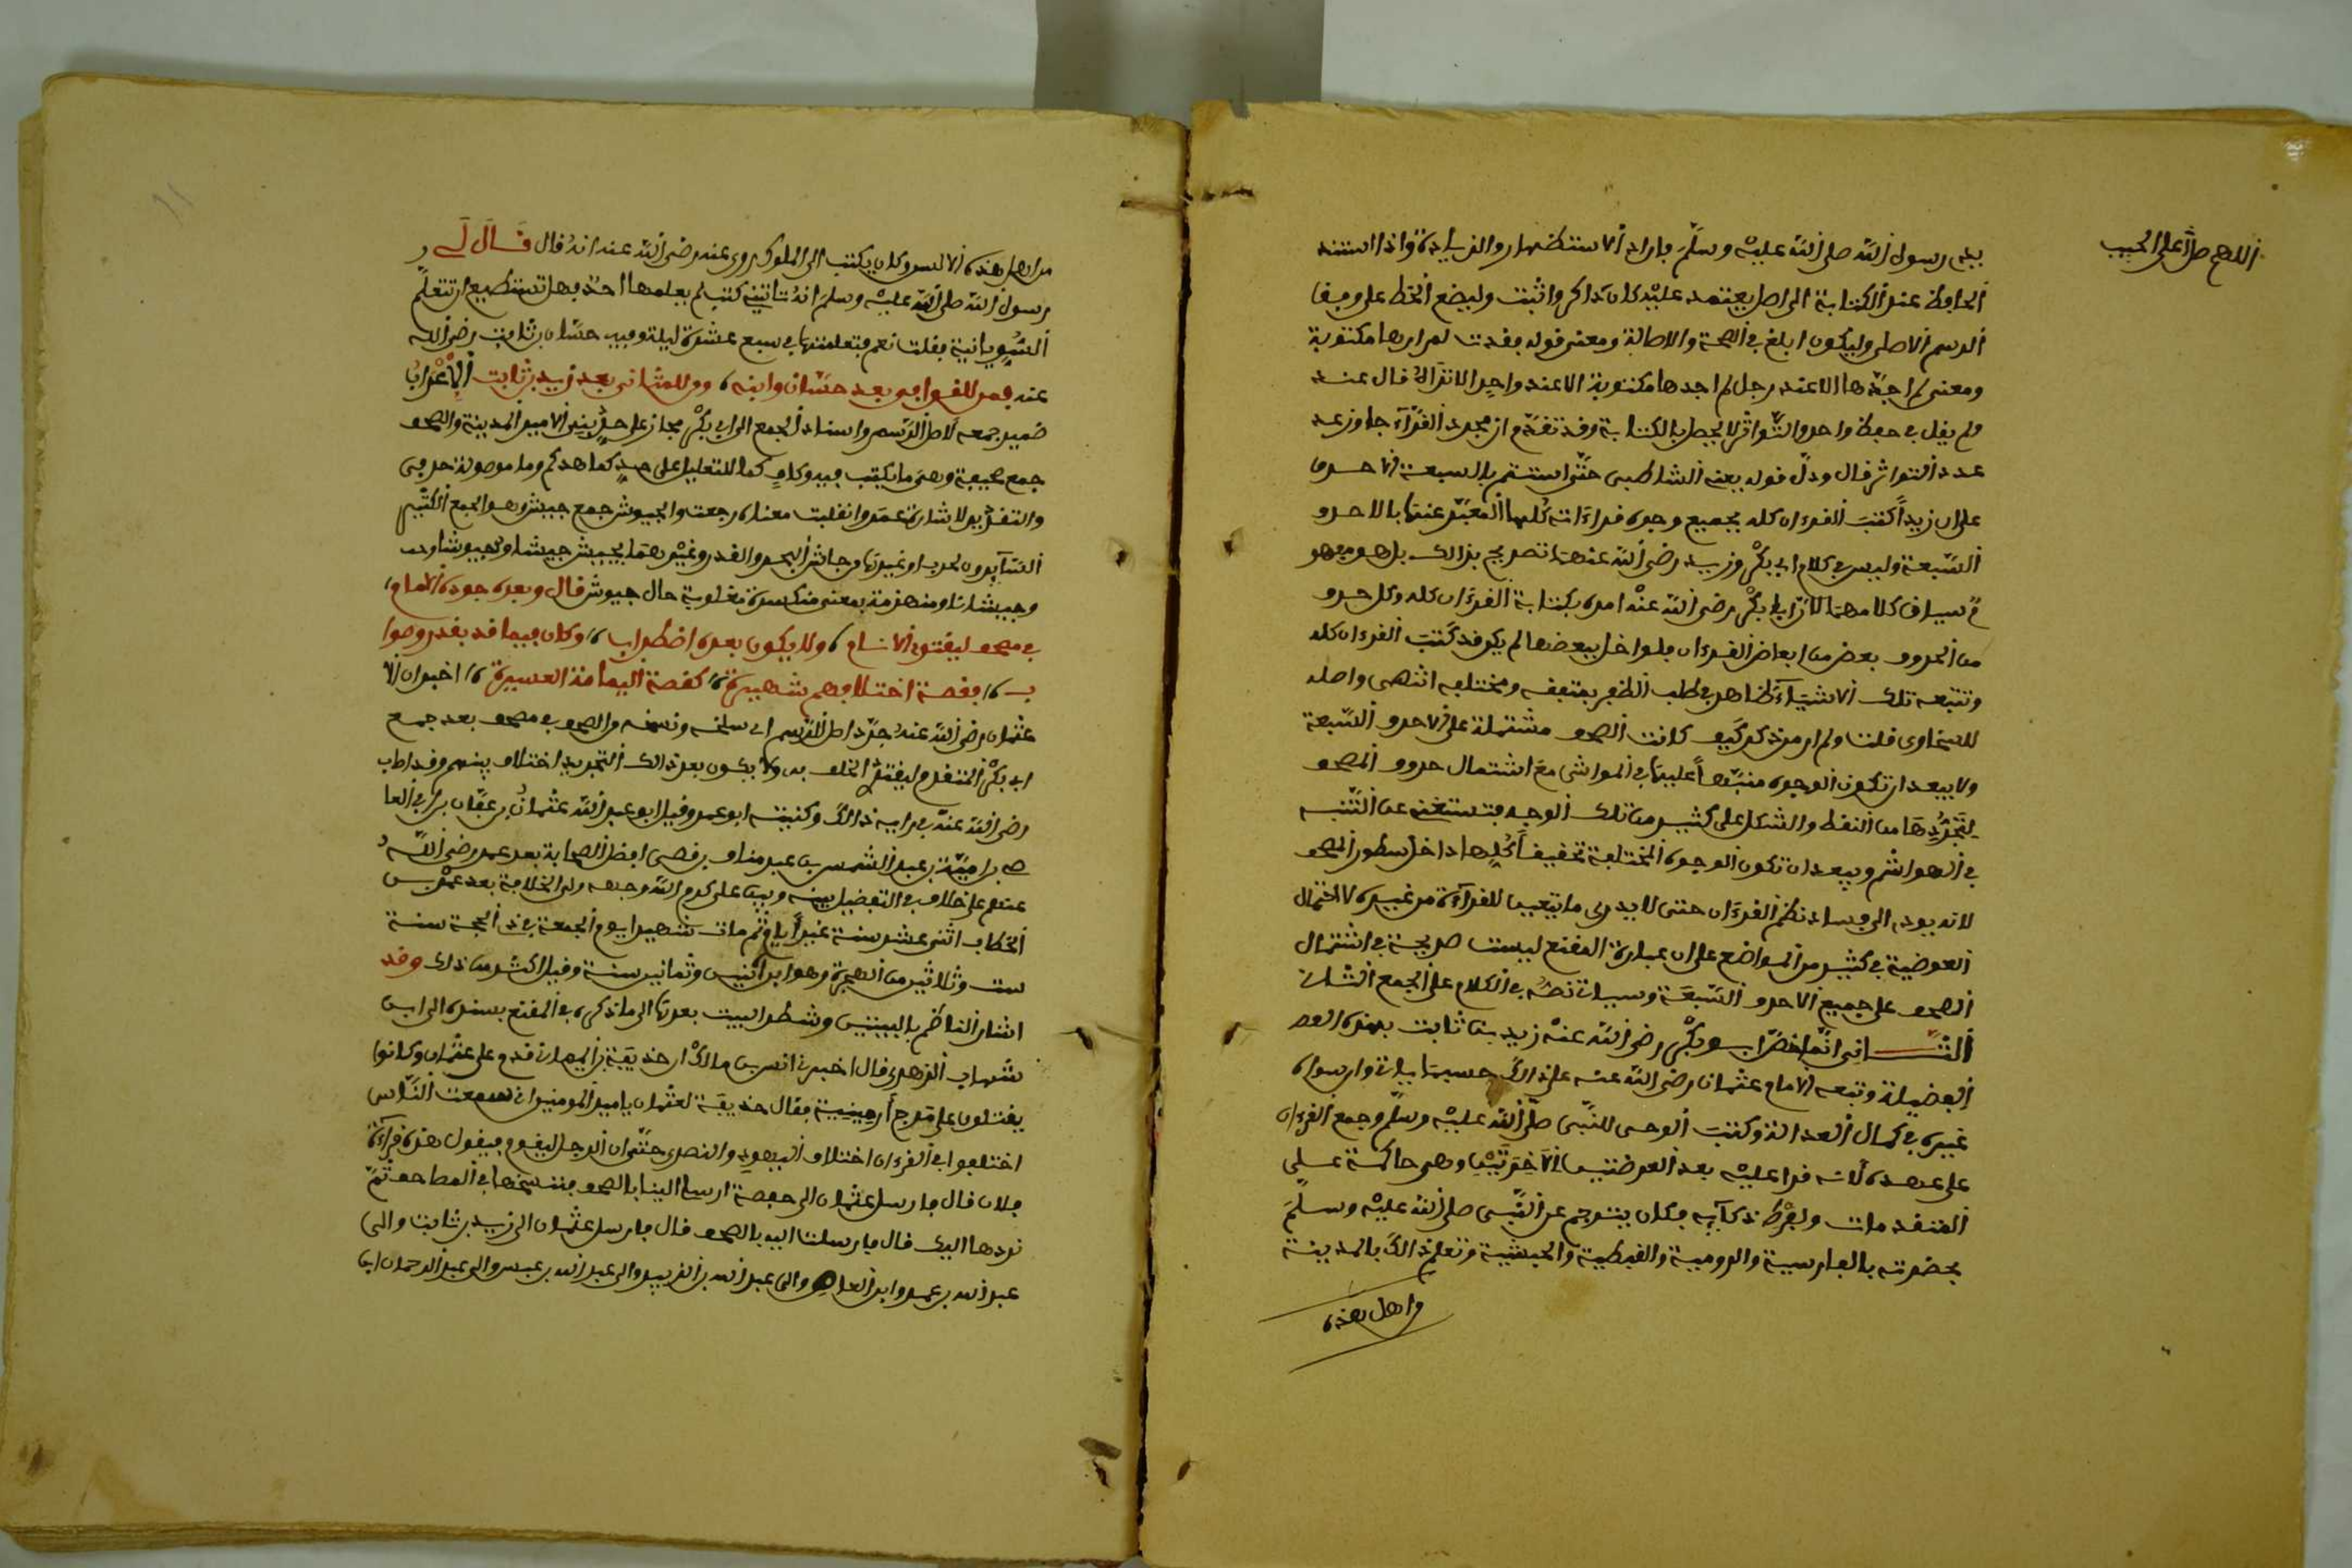 اللهم صل على الحبيب
بيد رسول الله صلى الله عليه وسلم باراد الاستظهار والزيادة واذا استند
الحافظ عند الكتابة الى اصل يعتمد عليه كان ذاكرا واثبت وليضع الخط على وفق
الرسم الاصلي وليكون ابلغ في الصحة والاصالة ومعنى قوله ففدت لم ارها مكتوبة
ومعنى لم اجدها الا عند رجل لم اجدها مكتوبة الا عند واحد الا تراه قال عند
ولم يقل في حفظ واحد والتواتر لا يحصل بالكتابة وقد تقدم ان مجرد القرآء جاوز عد
عدد التواتر قال ودل قوله يعني الشاطبي حتى استتم بالسبعة الاحرف
على ان زيدا كتب القرءان كله بجميع وجوه قراءاته كلها المعبر عنها بالاحرف
السبعة وليس في كلام ابي بكر وزيد رضي الله عنهما تصريح بذالك بل هو مفهو
م سياق كلامهما لان ابا بكر رضي الله عنه امره بكتابة القرءان كله وكل حرف
من الحروف بعض من ابعاض القرءان فلو اخل ببعضها لم يكن قد كتب القرءان كله
وتتبعه تلك الاشياء ظاهر في طلب الظفر بمتفقه ومختلفه انتهى واصله
للسخاوى قلت ولم ار من ذكر كيف كانت الصحف مشتملة على الاحرف السبعة
ولا يبعد ان تكون الوجوه منبها عليها في الحواشى مع اشتمال حروف المصحف
لتجردها من النقط والشكل على كثير من تلك الوجوه فتستغنى عن التنبيه
في الهواشم ويبعد ان تكون الوجوه المختلفة تخفيفا كلها داخل سطور المصحف
لانه يودى الى فساد نظم القرءان حتى لا يدرى ما يتعين للقرآءة من غيره لاحتمال
العوضية في كثير من المواضع على ان عبارة المقنع ليست صريحة في اشتمال
الصحف على جميع الاحرف السبعة وسياتى نصه في الكلام على الجمع الثانى
الثانى انما خص ابو بكر رضي الله عنه زيد بن ثابت بهذه
الفضيلة وتبعه الامام عثمان رضي الله عنه على ذالك حسبما ياتى وان سواه
غيره في كمال العدالة وكتب الوحى للنبى صلى الله عليه وسلم وجمع القرءان
على عهده لانه قرا عليه بعد العرضتين الاخيرتين وهى حاكمة على
المتقدمات ولفرط ذكآيه فكان يترجم عن النبى صلى الله عليه وسلم
بحضرته بالفارسية والرومية والقبطية والحبشية وتعلم ذالك بالمدينة
واهل هذه
من اهل هذه الالسن وكان يكتب الى الملوك روى عنه رضى الله عنه انه قال قال لى
رسول الله صلى الله عليه وسلم انه تاتينى كتب لم يعلمها احد فهل تستطيع ان تتعلم
السريانية فقلت نعم فتعلمتها في سبع عشرة ليلة وفيه حسان بن ثابت رضى الله
عنه فمن للقوافى بعد حسان وابنه ومن للمثانى بعد زيد بن ثابت الاعراب
ضمير جمعه لاصل الرسم واسناد الجمع الى ابى بكر مجاز على حد بنى الامير المدينة والصحف
جمع صحيفة وهى ما يكتب فيه وكاف كما للتعليل على حد كما هدىكم وما موصولة حرفى
والتقدير لاشارة عمر وانقلبت معناه رجعت والجيوش جمع جيش وهو الجمع الكثير
السآيرون لحرب او غيرها من جاش البحر والقدر وغيرهما يجيش جيشا وجيوشا
وجيشانا ومنهزمة بمعنى منكسرة مغلوبة حال جيوش قال وبعده جرده الامام
في مصحف ليقتدى الانام ولا يكون بعده اضطراب وكان فيما قد بفد رءوا صوا
ب فقصة اختلافهم شهيرة كقصة اليمامة العسيرة اخبر ان الا
عثمان رضى الله عنه جرد اصل الرسم اى سلخه ونسخه والصحف في مصحف بعد جمع
ابى بكر المتقدم ليقتدى الخلف به ولا يكون بعد ذالك التجريد اختلاف بينهم وقد اصاب
رضى الله عنه في رايه ذالك وكنيته ابو عمرو وقيل ابو عبد الله عثمان بن عفان بن ابى العا
صى بن امية بن عبد الشمس بن عبد مناف بن قصى افضل الصحابة بعد عمر رضى الله
عنهم على خلاف في التفضيل بينه وبين على كرم الله وجهه ولى الخلافة بعد عمر بن
الخطاب اثنى عشر سنة غير ايام ثم مات شهيدا يوم الجمعة في ذى الحجة سنة
ست وثلاثين من الهجرة وهو ابن اثنين وثمانين سنة وقيل اكثر من ذلك وقد
اشار الناظم بالبيتين وشطر البيت بعدها الى ما ذكره في المقنع بسنده الى ابن
شهاب الزهرى قال اخبرنى انس بن مالك ان حذيفة بن اليمان قدم على عثمان وكانوا
يقتلون على مرج ارمينية فقال حذيفة لعثمان يا مير المومنين انى سمعت الناس
اختلفوا في القرءان اختلاف اليهود والنصرى حتى ان الرجل ليقوم فيقول هذه قرآءة
فلان قال فارسل عثمان الى حفصة ارسلى الينا بالصحف ننسخها في المصاحف ثم
نردها اليك قال فارسلت اليه بالصحف قال فارسل عثمان الى زيد بن ثابت والى
عبد الله بن عمرو ابن العاص والى عبد الله بن الزبير والى عبد الله بن عباس والى عبد الرحمان ابن